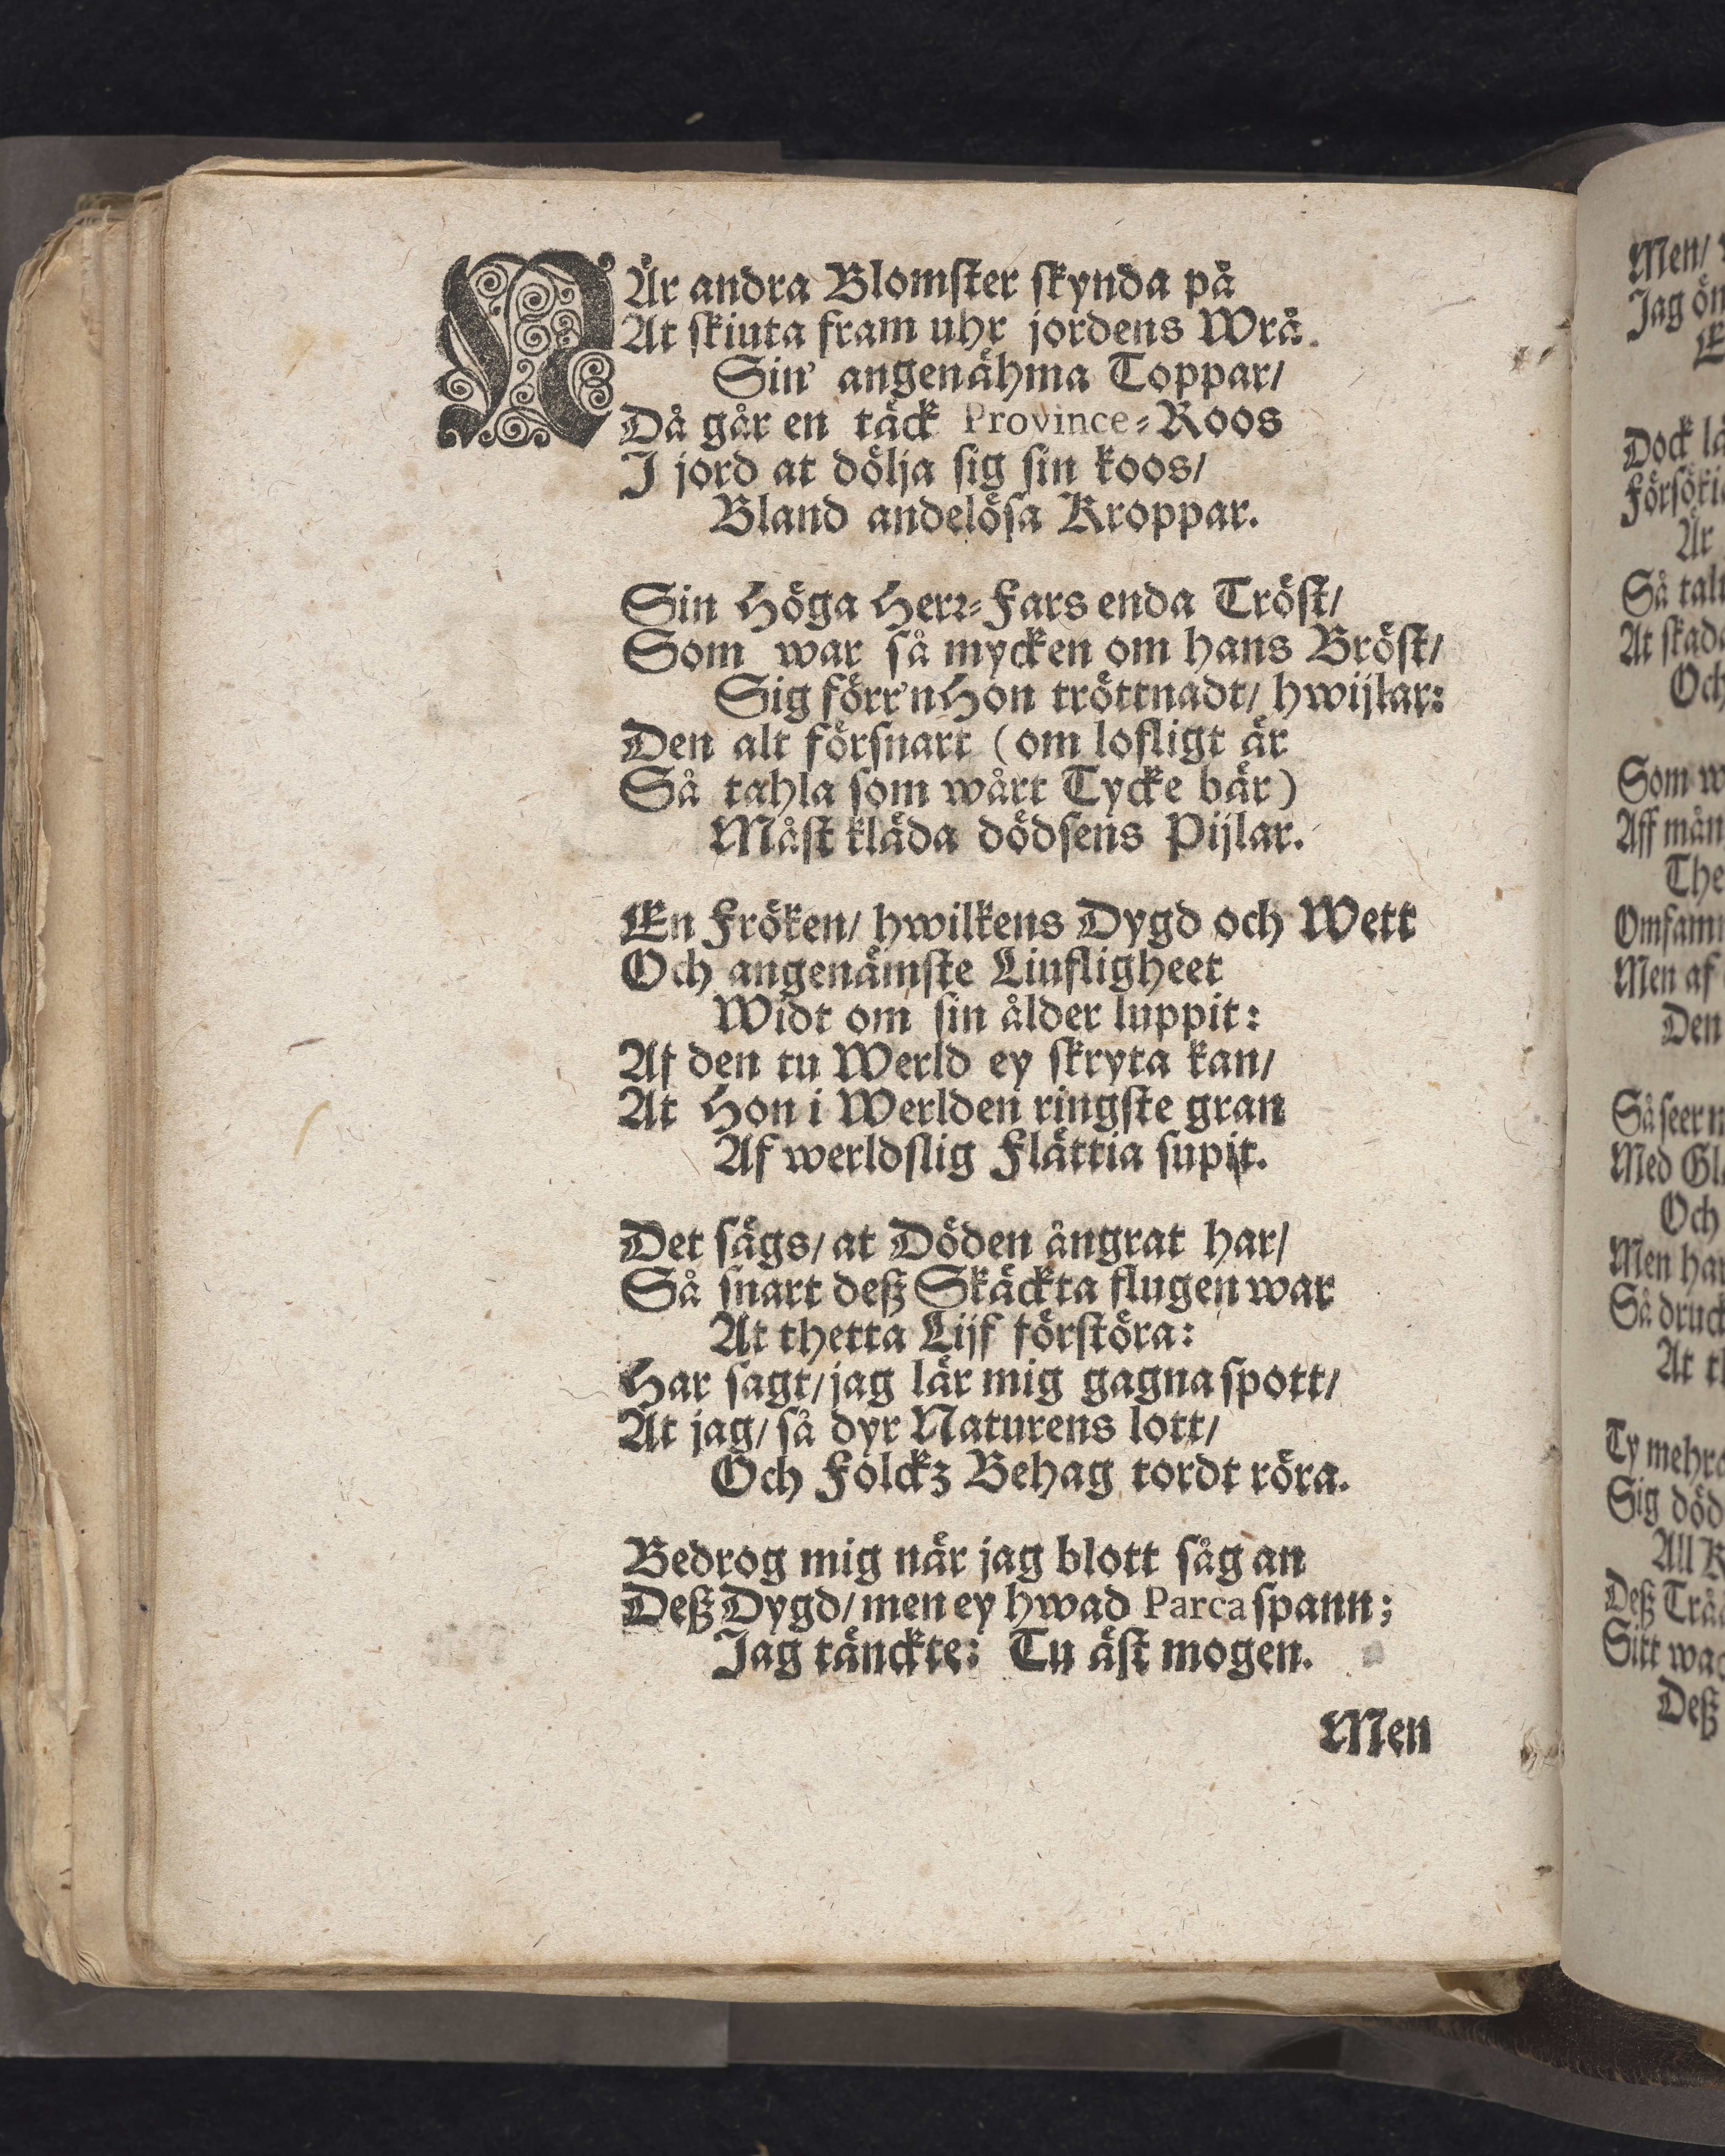 NÄr andra Blomster skynda på
At skiuta fram uhr jordens Wrå.
Sin' angenähma Toppar/
Då går en täck Province-Roos
I jord at dölja sig sin koos/
Bland andelösa Kroppar.
Sin Höga Herr-Fars enda Tröst/
Som war så mycken om hans Bröst/
Sig förr'n Hon tröttnadt/ hwijlar:
Den alt försnart (om lofligt är
Så tahla som wårt Tycke bär)
Måst kläda dödsens Pijlar.
En Fröken/ hwilkens Dygd och Wett
Och angenämste Liufligheet
Widt om sin ålder luppit:
Af den tu Werld ey skryta kan/
At Hon i Werlden ringste gran
Af werldslig Flättia supit.
Det sägs/ at Döden ångrat har/
Så snart deß Skäckta flugen war
At thetta Lijf förstöra:
Har sagt/ jag lär mig gagna spott/
At jag/ så dyr Naturens lott/
Och Folckz Behag tordt röra.
Bedrog mig när jag blott såg an
Deß Dygd/ men ey hwad Parca spann;
Jag tänckte: Tu äst mogen.
Men
Men/
Jag
Dock
Är
Så
At
Och
Som
Aff
The
Men af
Den
Så seer
Med
Och
Men
Så
At
Ty
Sig
All
Deß
Sitt
Deß